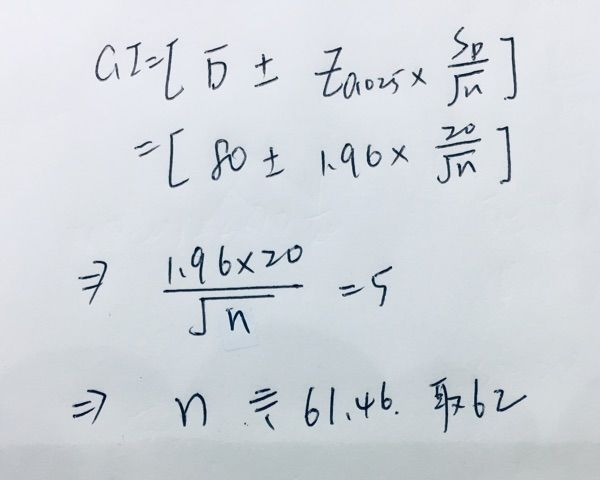 CI=[ D̄ ± Z₀.₀₂₅ × S_D/√n ]
=[ 80 ± 1.96 × 20/√n ]
⇒ 1.96×20/√n = 5
⇒ n ≒ 61.46. 取62